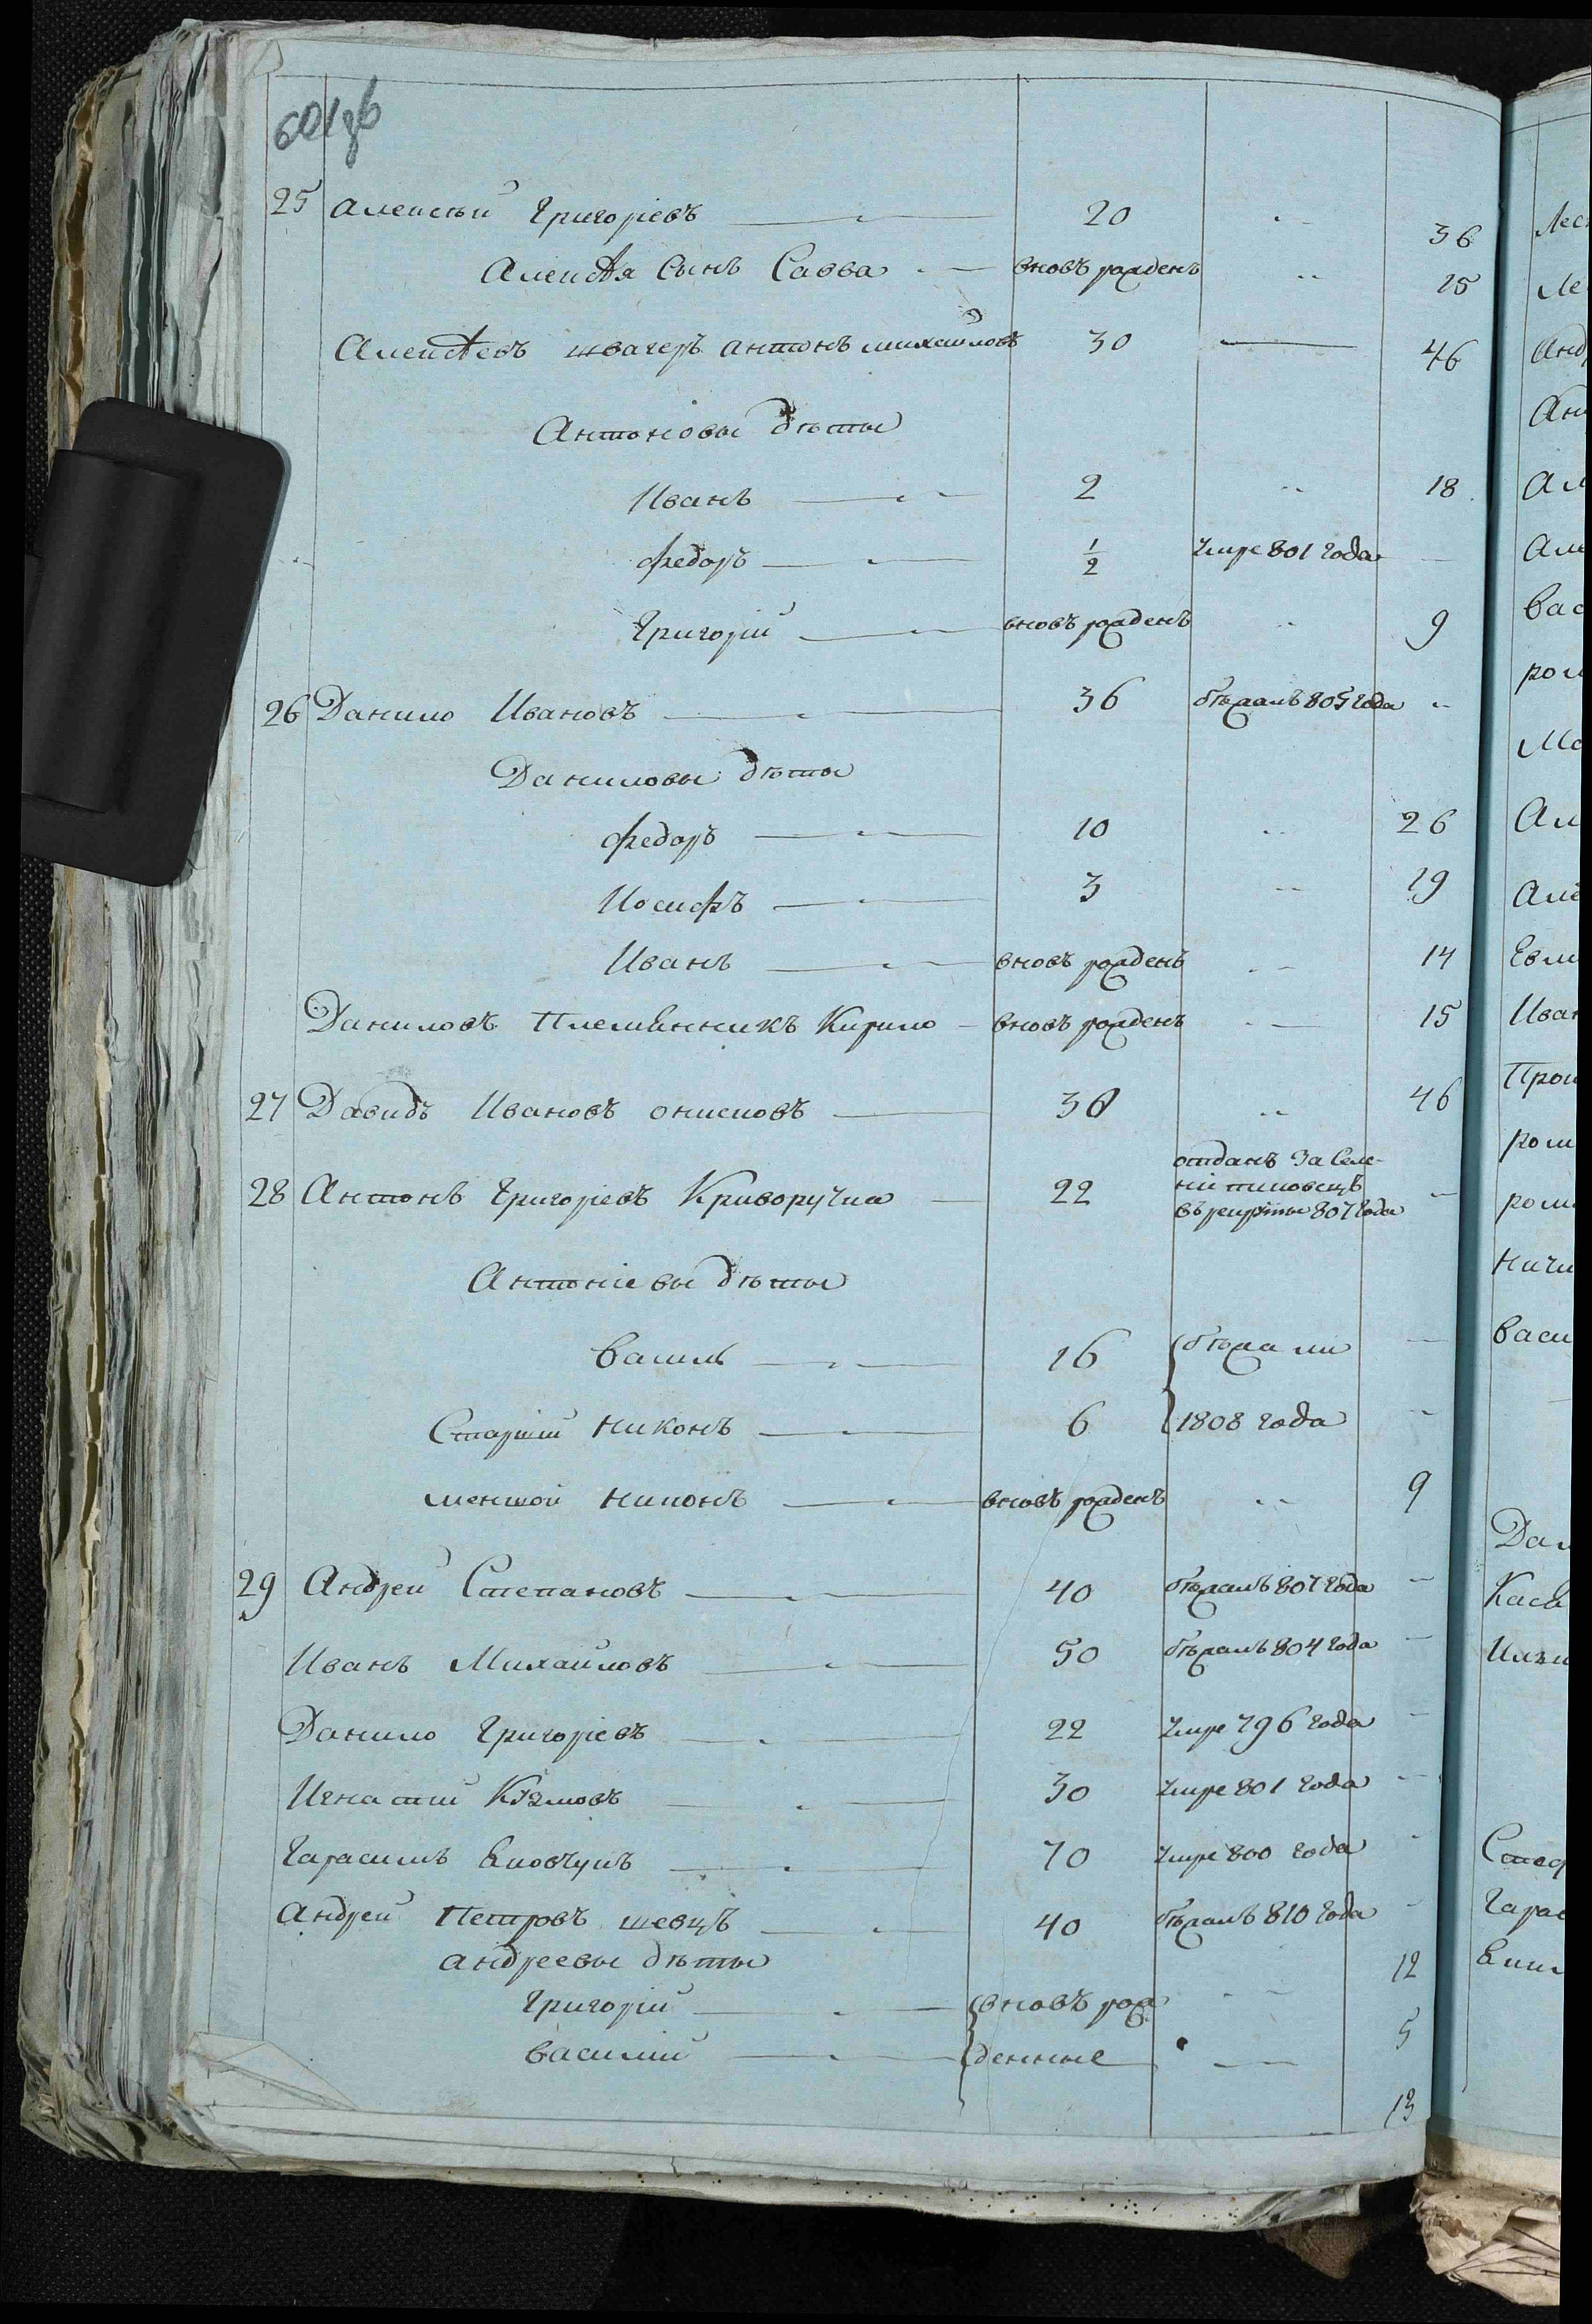 601зв
25 Алексѣй Григорьевъ 20 36
Алексѣя сынъ Савва вновь рожденъ 15
Алексѣевъ швагеръ Антонъ Михайловъ 30 46
Антоновы дѣты
Иванъ 2 18
Федоръ 1/2 умре 801 года
Григорій вновь рожденъ 9
26 Данило Ивановъ 36 бѣжалъ 805 года
Даниловы дѣты
Федоръ 10 26
Иосифъ 3 19
Иванъ вновь рожденъ 14
Даниловъ племѣнникъ Кирило вновь рожденъ 15
27 Давидъ Ивановъ 30 46
28 Антонъ Григорьевъ Криворучка 22 отданъ за селе-
ніе
въ рекруты 807 года
Антоніевы дѣты
Василь 16 бѣжали
Старшій Никонъ 6 1808 года
меншой Никонъ вновь рожденъ 9
29 Андрей Степановъ 40 бѣжалъ 807 года
Иванъ Михайловъ 50 бѣжалъ 804 года
Данило Григорьевъ 22 умре 796 года
Игнатій 30 умре 801 года
Гарасимъ 70 умре 800 года
Андрей Петровъ шевцъ 40 бѣжалъ 810 года
Андреевы дѣты 12
Григорій вновь рож
5
Василій денные
13